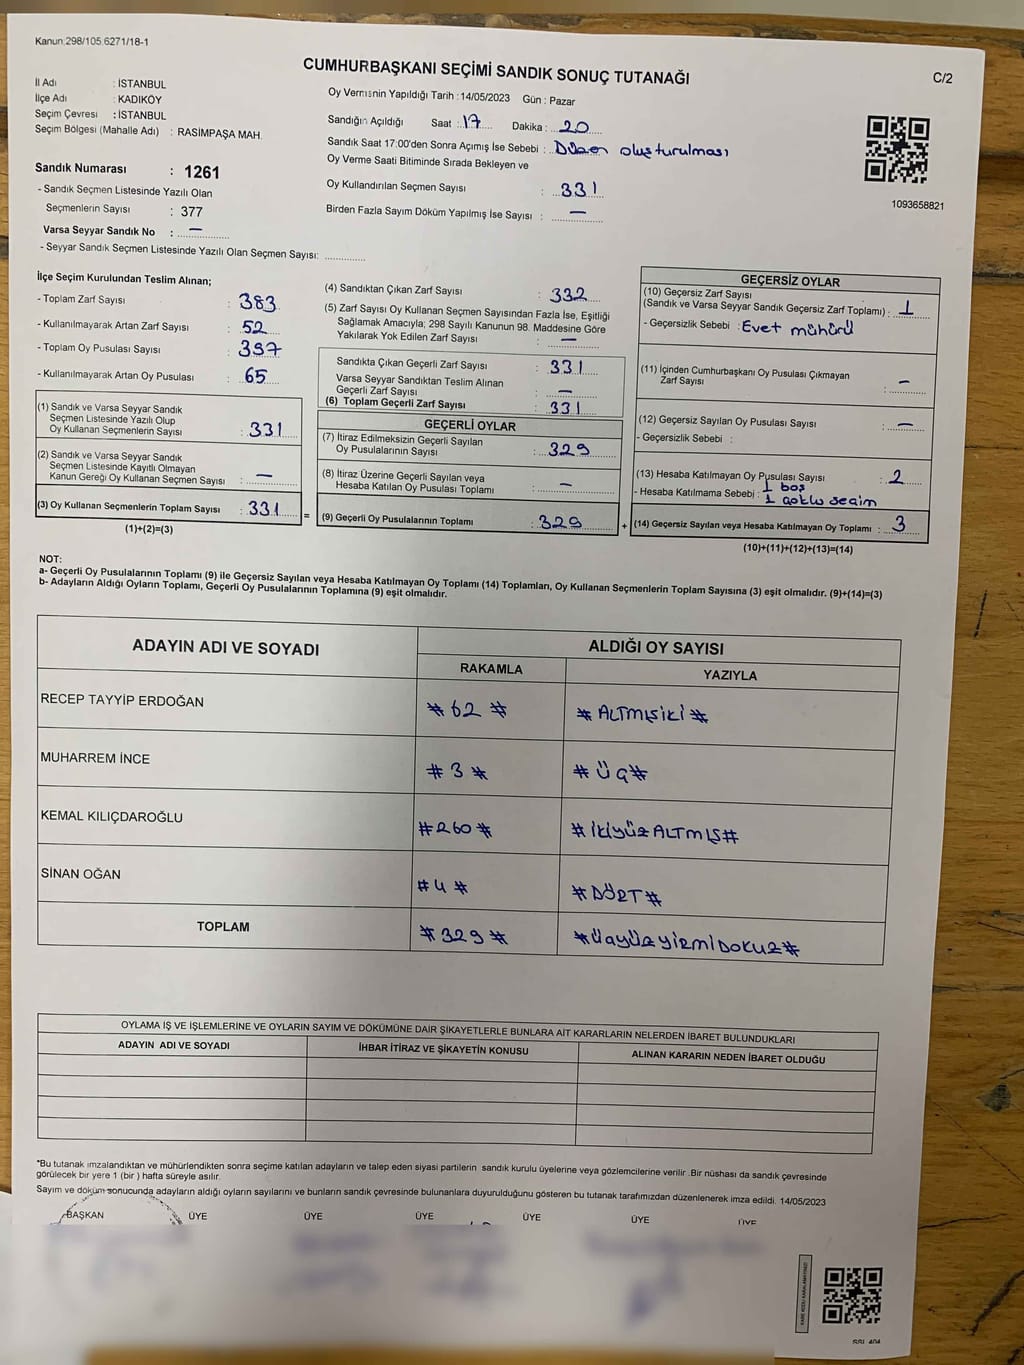 Kanun:298/105.6271/18-1
CUMHURBAŞKANI SEÇİMİ SANDIK SONUÇ TUTANAĞI
C/2
İl Adı : İSTANBUL
İlçe Adı : KADIKÖY
Seçim Çevresi : İSTANBUL
Seçim Bölgesi (Mahalle Adı) : RASİMPAŞA MAH.
Sandık Numarası : 1261
- Sandık Seçmen Listesinde Yazılı Olan
Seçmenlerin Sayısı : 377
Varsa Seyyar Sandık No : —
- Seyyar Sandık Seçmen Listesinde Yazılı Olan Seçmen Sayısı: ..............
Oy Vermsnin Yapıldığı Tarih : 14/05/2023 Gün : Pazar
Sandığın Açıldığı Saat : 17 Dakika : 20
Sandık Saat 17:00'den Sonra Açımış İse Sebebi : Düzen oluşturulması
Oy Verme Saati Bitiminde Sırada Bekleyen ve
Oy Kullandırılan Seçmen Sayısı : 331
Birden Fazla Sayım Döküm Yapılmış İse Sayısı : —
1093658821
İlçe Seçim Kurulundan Teslim Alınan;
- Toplam Zarf Sayısı : 383
- Kullanılmayarak Artan Zarf Sayısı : 52
- Toplam Oy Pusulası Sayısı : 397
- Kullanılmayarak Artan Oy Pusulası : 65
(1) Sandık ve Varsa Seyyar Sandık
Seçmen Listesinde Yazılı Olup
Oy Kullanan Seçmenlerin Sayısı : 331
(2) Sandık ve Varsa Seyyar Sandık
Seçmen Listesinde Kayıtlı Olmayan
Kanun Gereği Oy Kullanan Seçmen Sayısı : —
(3) Oy Kullanan Seçmenlerin Toplam Sayısı : 331 =
(1)+(2)=(3)
(4) Sandıktan Çıkan Zarf Sayısı : 332
(5) Zarf Sayısı Oy Kullanan Seçmen Sayısından Fazla İse, Eşitliği
Sağlamak Amacıyla; 298 Sayılı Kanunun 98. Maddesine Göre
Yakılarak Yok Edilen Zarf Sayısı : —
Sandıkta Çıkan Geçerli Zarf Sayısı : 331
Varsa Seyyar Sandıktan Teslim Alınan
Geçerli Zarf Sayısı : —
(6) Toplam Geçerli Zarf Sayısı : 331
GEÇERLİ OYLAR
(7) İtiraz Edilmeksizin Geçerli Sayılan
Oy Pusulalarının Sayısı : 329
(8) İtiraz Üzerine Geçerli Sayılan veya
Hesaba Katılan Oy Pusulası Toplamı : —
(9) Geçerli Oy Pusulalarının Toplamı : 329 +
GEÇERSİZ OYLAR
(10) Geçersiz Zarf Sayısı
(Sandık ve Varsa Seyyar Sandık Geçersiz Zarf Toplamı) : 1
- Geçersizlik Sebebi : Evet mühürü
(11) İçinden Cumhurbaşkanı Oy Pusulası Çıkmayan
Zarf Sayısı : —
(12) Geçersiz Sayılan Oy Pusulası Sayısı : —
- Geçersizlik Sebebi :
(13) Hesaba Katılmayan Oy Pusulası Sayısı : 2
- Hesaba Katılmama Sebebi : 1 boş
1 çoklu seçim
(14) Geçersiz Sayılan veya Hesaba Katılmayan Oy Toplamı : 3
(10)+(11)+(12)+(13)=(14)
NOT:
a- Geçerli Oy Pusulalarının Toplamı (9) ile Geçersiz Sayılan veya Hesaba Katılmayan Oy Toplamı (14) Toplamları, Oy Kullanan Seçmenlerin Toplam Sayısına (3) eşit olmalıdır. (9)+(14)=(3)
b- Adayların Aldığı Oyların Toplamı, Geçerli Oy Pusulalarının Toplamına (9) eşit olmalıdır.
ADAYIN ADI VE SOYADI
ALDIĞI OY SAYISI
RAKAMLA YAZIYLA
RECEP TAYYİP ERDOĞAN # 62 # # ALTMIŞİKİ #
MUHARREM İNCE # 3 # # ÜÇ #
KEMAL KILIÇDAROĞLU # 260 # # İKİYÜZ ALTMIŞ #
SİNAN OĞAN # 4 # # DÖRT #
TOPLAM # 329 # # ÜÇYÜZYİRMİDOKUZ #
OYLAMA İŞ VE İŞLEMLERİNE VE OYLARIN SAYIM VE DÖKÜMÜNE DAİR ŞİKAYETLERLE BUNLARA AİT KARARLARIN NELERDEN İBARET BULUNDUKLARI
ADAYIN ADI VE SOYADI İHBAR İTİRAZ VE ŞİKAYETİN KONUSU ALINAN KARARIN NEDEN İBARET OLDUĞU
*Bu tutanak imzalandıktan ve mühürlendikten sonra seçime katılan adayların ve talep eden siyasi partilerin sandık kurulu üyelerine veya gözlemcilerine verilir .Bir nüshası da sandık çevresinde
görülecek bir yere 1 (bir ) hafta süreyle asılır.
Sayım ve döküm sonucunda adayların aldığı oyların sayılarını ve bunların sandık çevresinde bulunanlara duyurulduğunu gösteren bu tutanak tarafımızdan düzenlenerek imza edildi. 14/05/2023
BAŞKAN ÜYE ÜYE ÜYE ÜYE ÜYE ÜYE